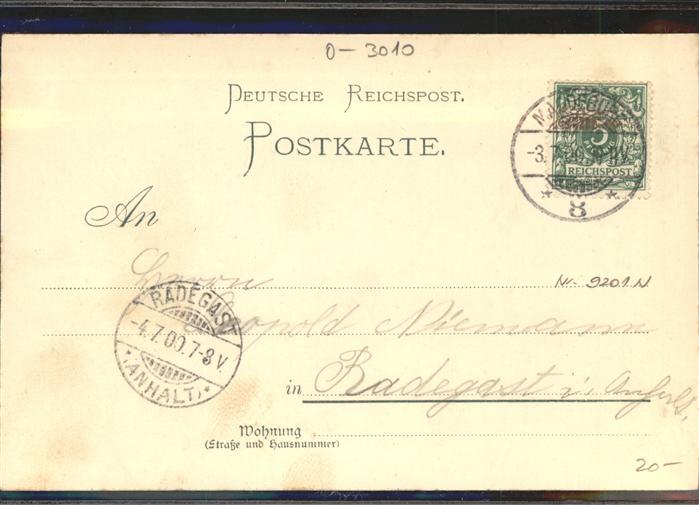 0-3010
DEUTSCHE REICHSPOST.
POSTKARTE.
MAGDEBURG
-3.7.00.
* 8 *
5
REICHSPOST
An
Herrn
Nr. 9201 N
Leopold Niemann
RADEGAST
-4.7.00.7-8 V.
*(ANHALT)*
in Radegast i. Anhalt.
Wohnung
(Straße und Hausnummer)
20-